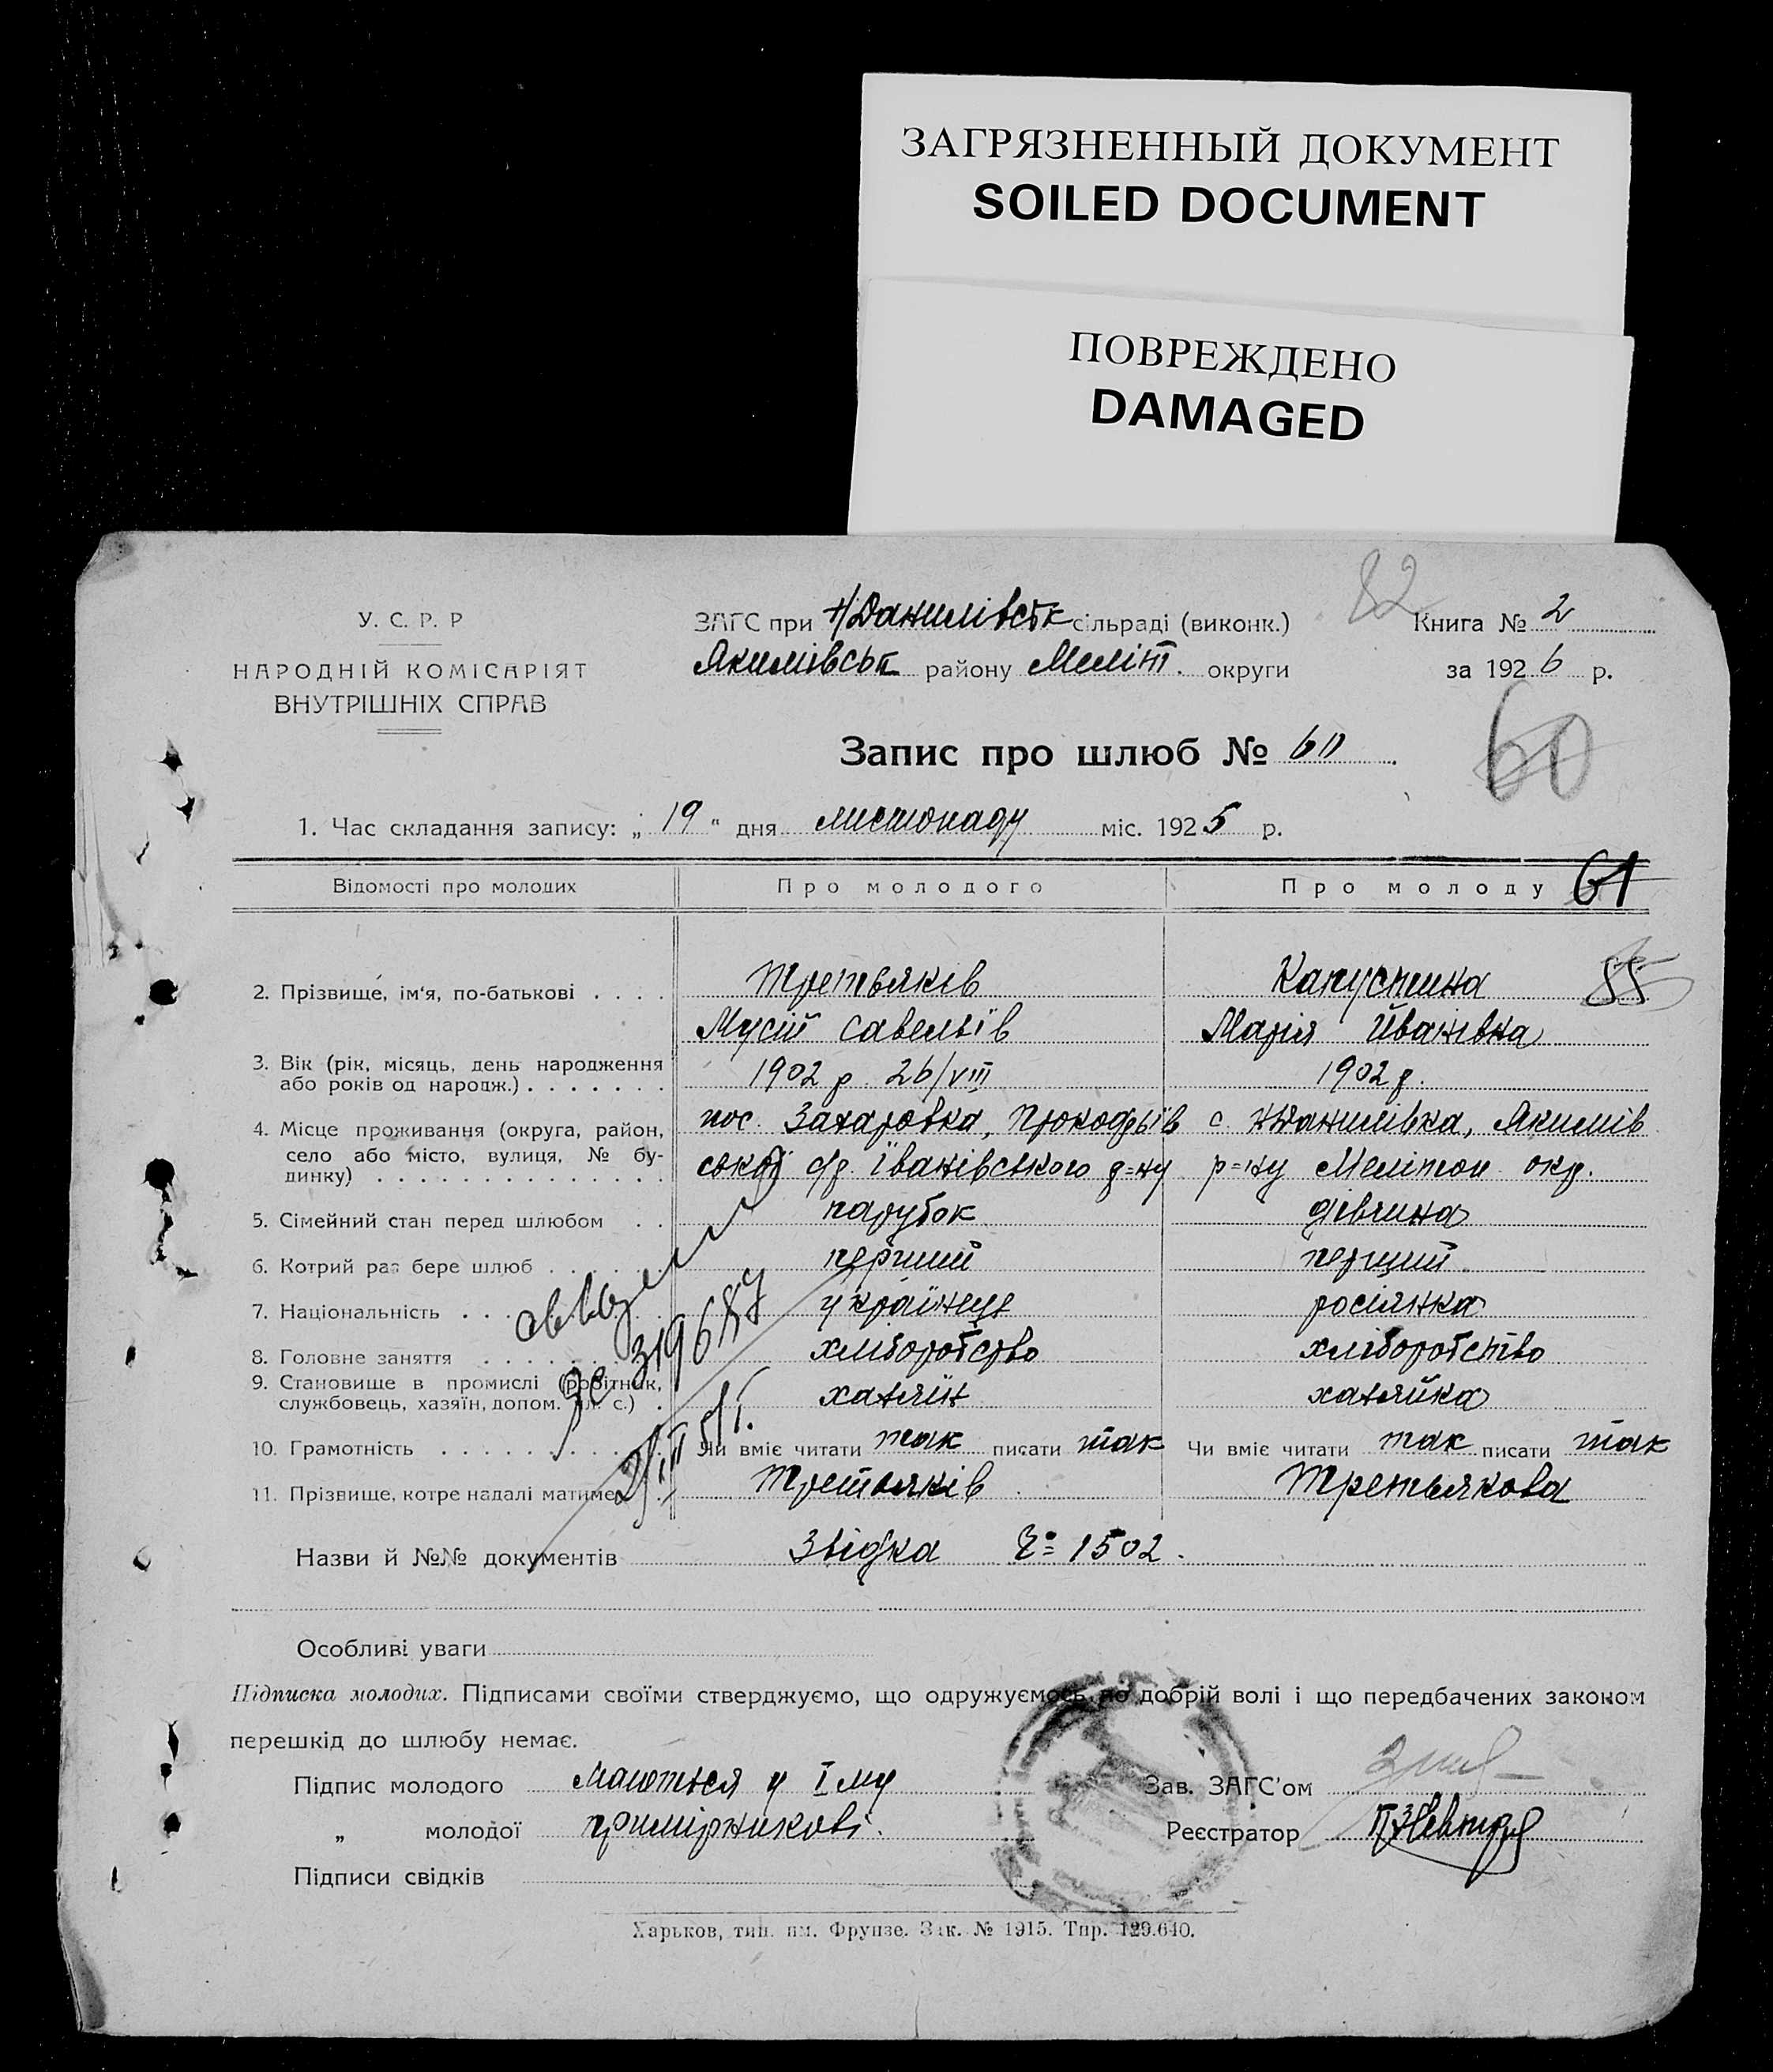 ЗАГРЯЗНЕННЫЙ ДОКУМЕНТ
SOILED DOCUMENT
ПОВРЕЖДЕНО
DAMAGED
82
У. С. Р. Р
НАРОДНІЙ КОМІСАРІЯТ
ВНУТРІШНІХ СПРАВ
ЗАГС при Н/Данилівськ сільраді (виконк.)
Книга № 2
Якимівськ району Меліт. округи
за 1926 р.
Запис про шлюб № 60
60
1. Час складання запису: „ 19 " дня листопаду міс. 1925 р.
Відомості про молодих Про молодого Про молоду 61
2. Прізвище, ім'я, по-батькові . . . . Третьяків Капустина 55
Мусій Савельїв Марія Йванівна
3. Вік (рік, місяць, день народження
або років од народж.) . . . . . . . 1902 р 26/VIII 1902 р.
4. Місце проживання (округа, район,
село або місто, вулиця, № бу-
динку) . . . . . . . . . . . . . .
пос. Захаровка, Прокофьїв
ської с/р. Іванівського р=ну
с. Н Данилівка, Якимів
р=ну Мелітоп окр.
5. Сімейний стан перед шлюбом . . парубок дівчина
6. Котрий раз бере шлюб . . . . перший перщий
7. Національність . . . українець росіянка
8. Головне заняття . . . . хліборобство хліборобство
9. Становище в промислі (робітник,
службовець, хазяїн, допом. чл. с.) . хазяїн хазяйка
10. Грамотність . . . . Чи вміє читати так писати так Чи вміє читати так писати так
11. Прізвище, котре надалі матиме Третьяків Третьякова
319687
Назви й №№ документів Звідка Ч= 1502.
Особливі уваги
Підписка молодих. Підписами своїми стверджуємо, що одружуємось по добрій волі і що передбачених законом
перешкід до шлюбу немає.
Підпис молодого маються у І му
„ молодої примірникові.
Зав. ЗАГС'ом
Реєстратор
Підписи свідків
Харьков, тип. им. Фрунзе. Зак. № 1915. Тир. 129.640.